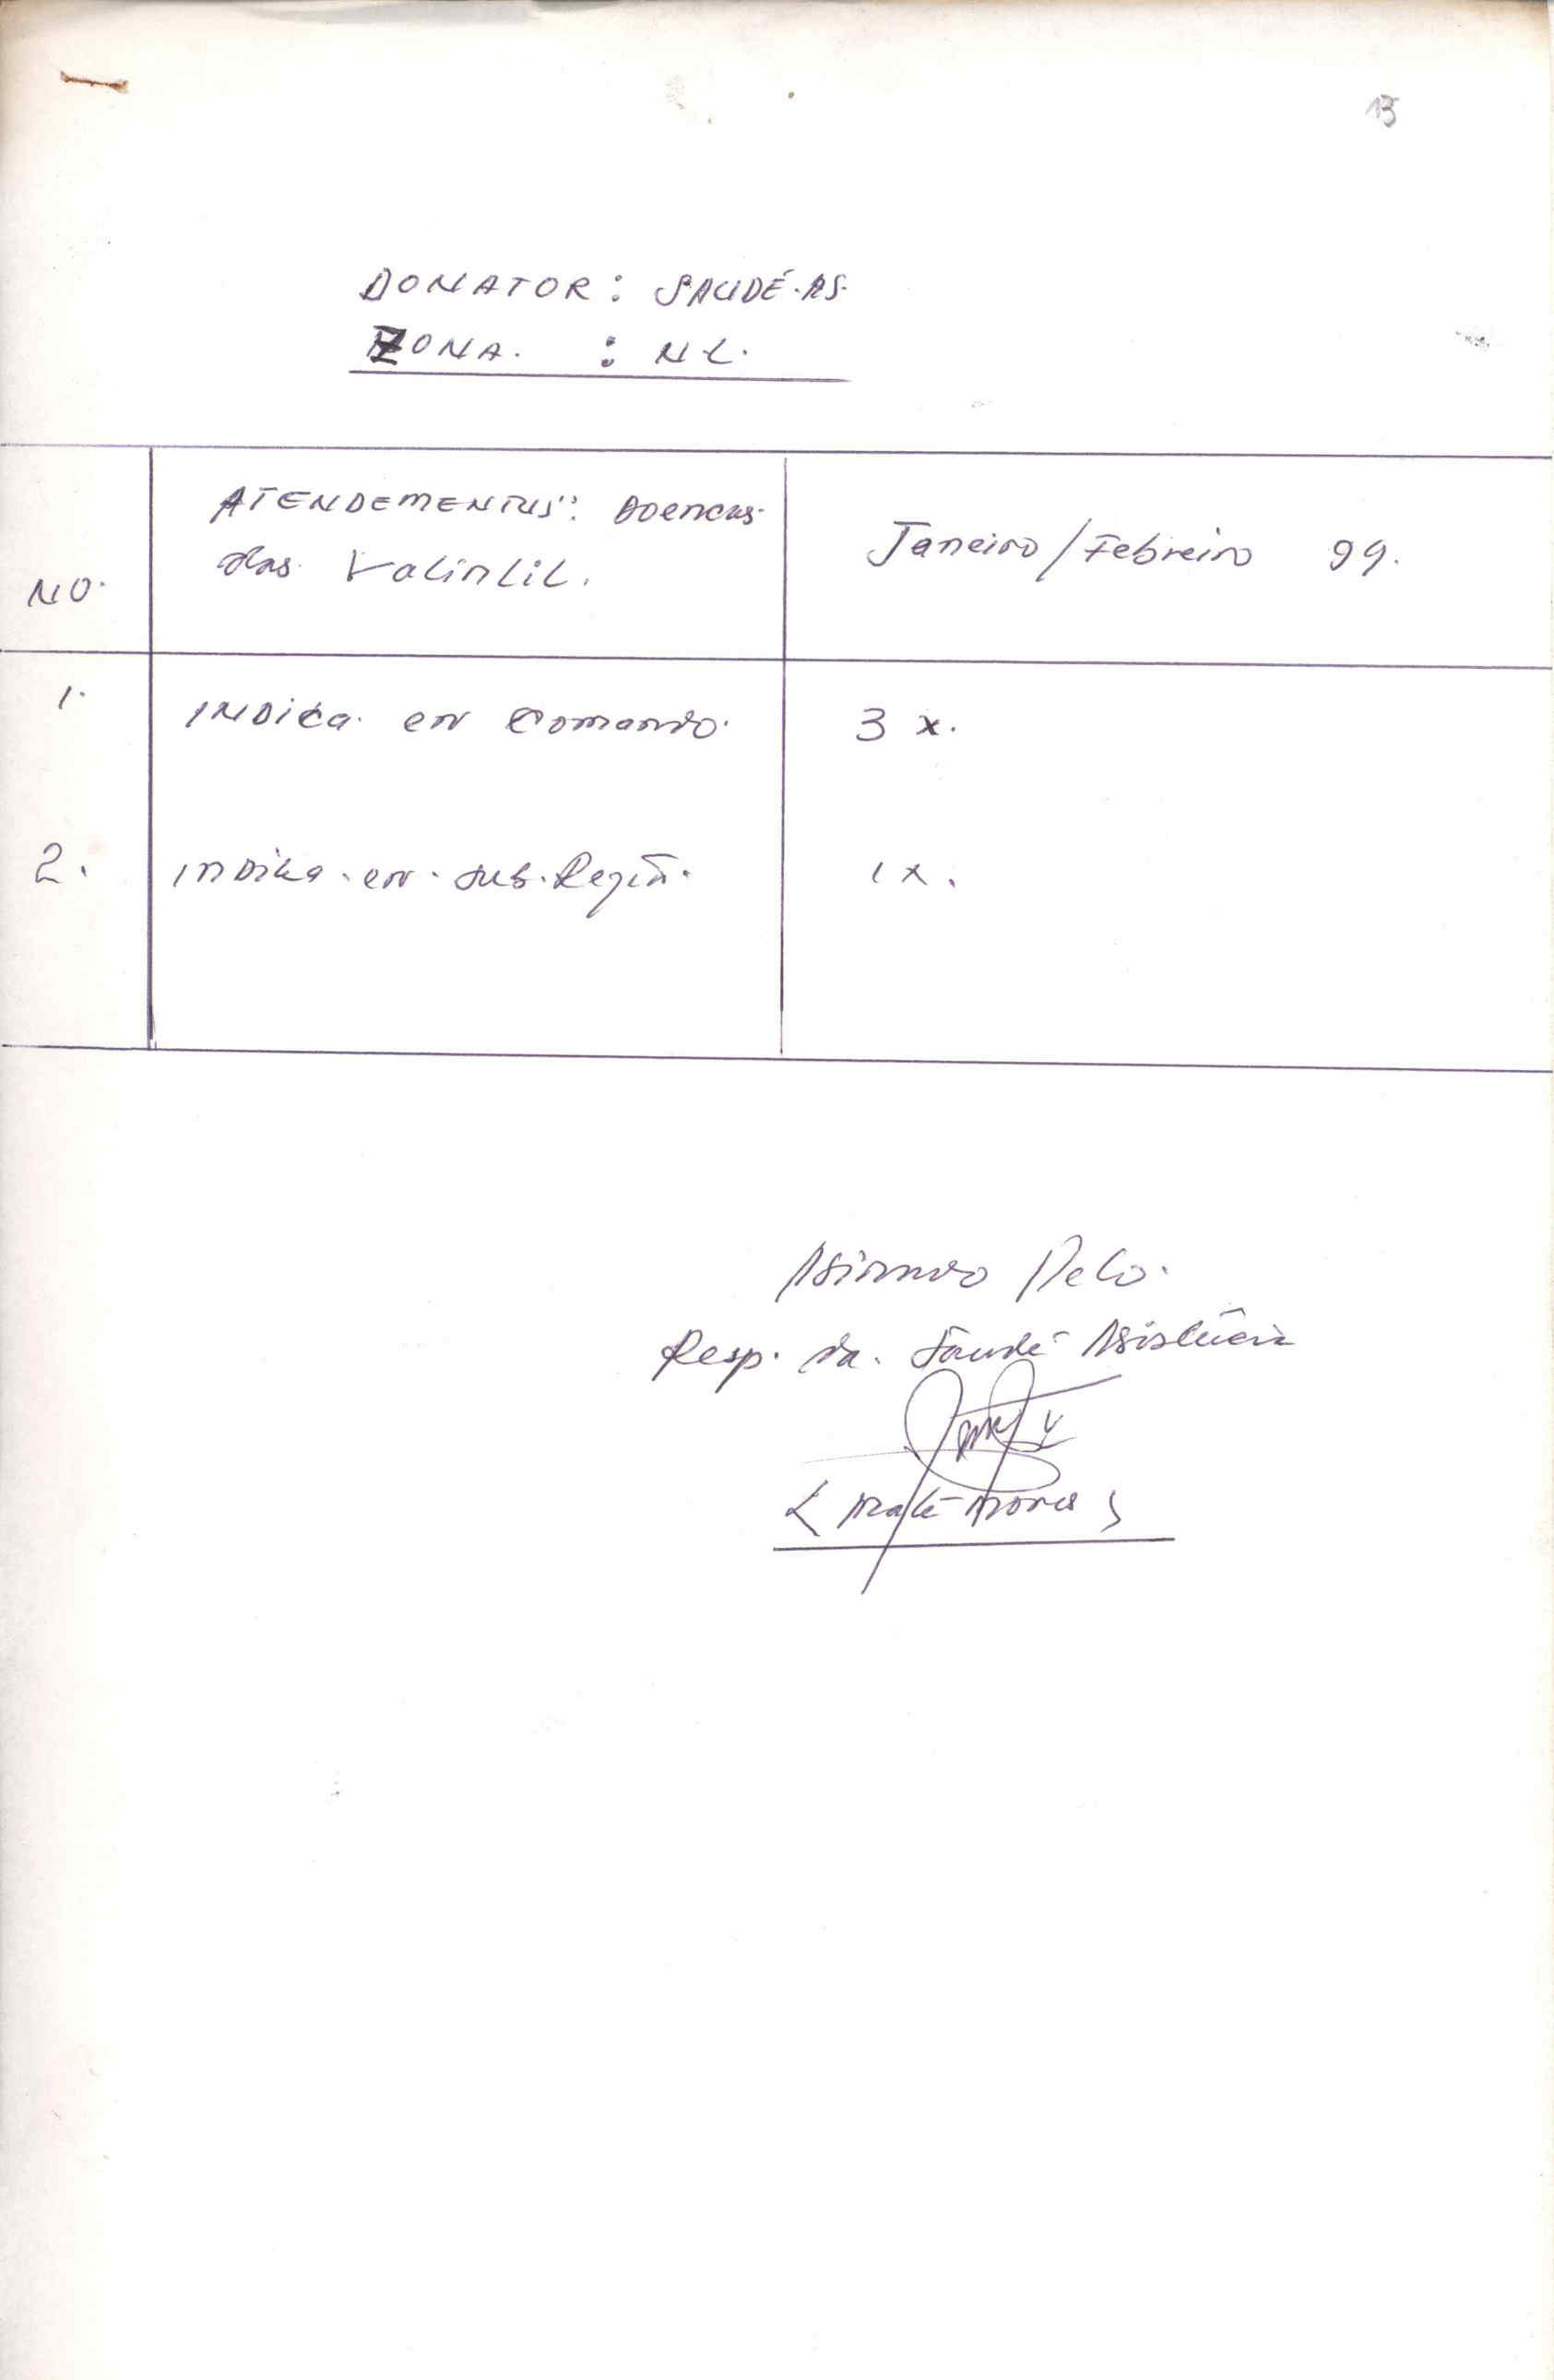 13
DONATOR: SAUDÉ.AS.
ZONA. : N L.
NO.
ATENDEMENTUS": Doencas.
das. Falintil.
Janeiro/Febreiro 99.
1.
INDICA. em Comando.
3 x.
2.
INDIKA. em. sub. Regiã.
1 x.
Asinado Pelo.
Resp. da. Saudé Asistência